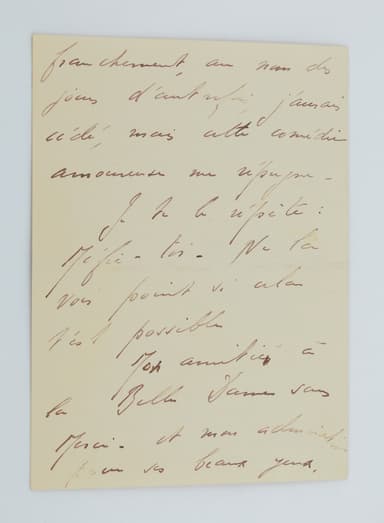 franchement, au nom des
jours d'autrefois, j'aurais
cédé, mais cette comédie
amoureuse me répugne –
Je te le répète :
Méfie-toi – Ne la
vois point si cela
t'est possible
Mes amitiés à
la Belle Dame sans
Merci – et mon admiration
pour ses beaux yeux.